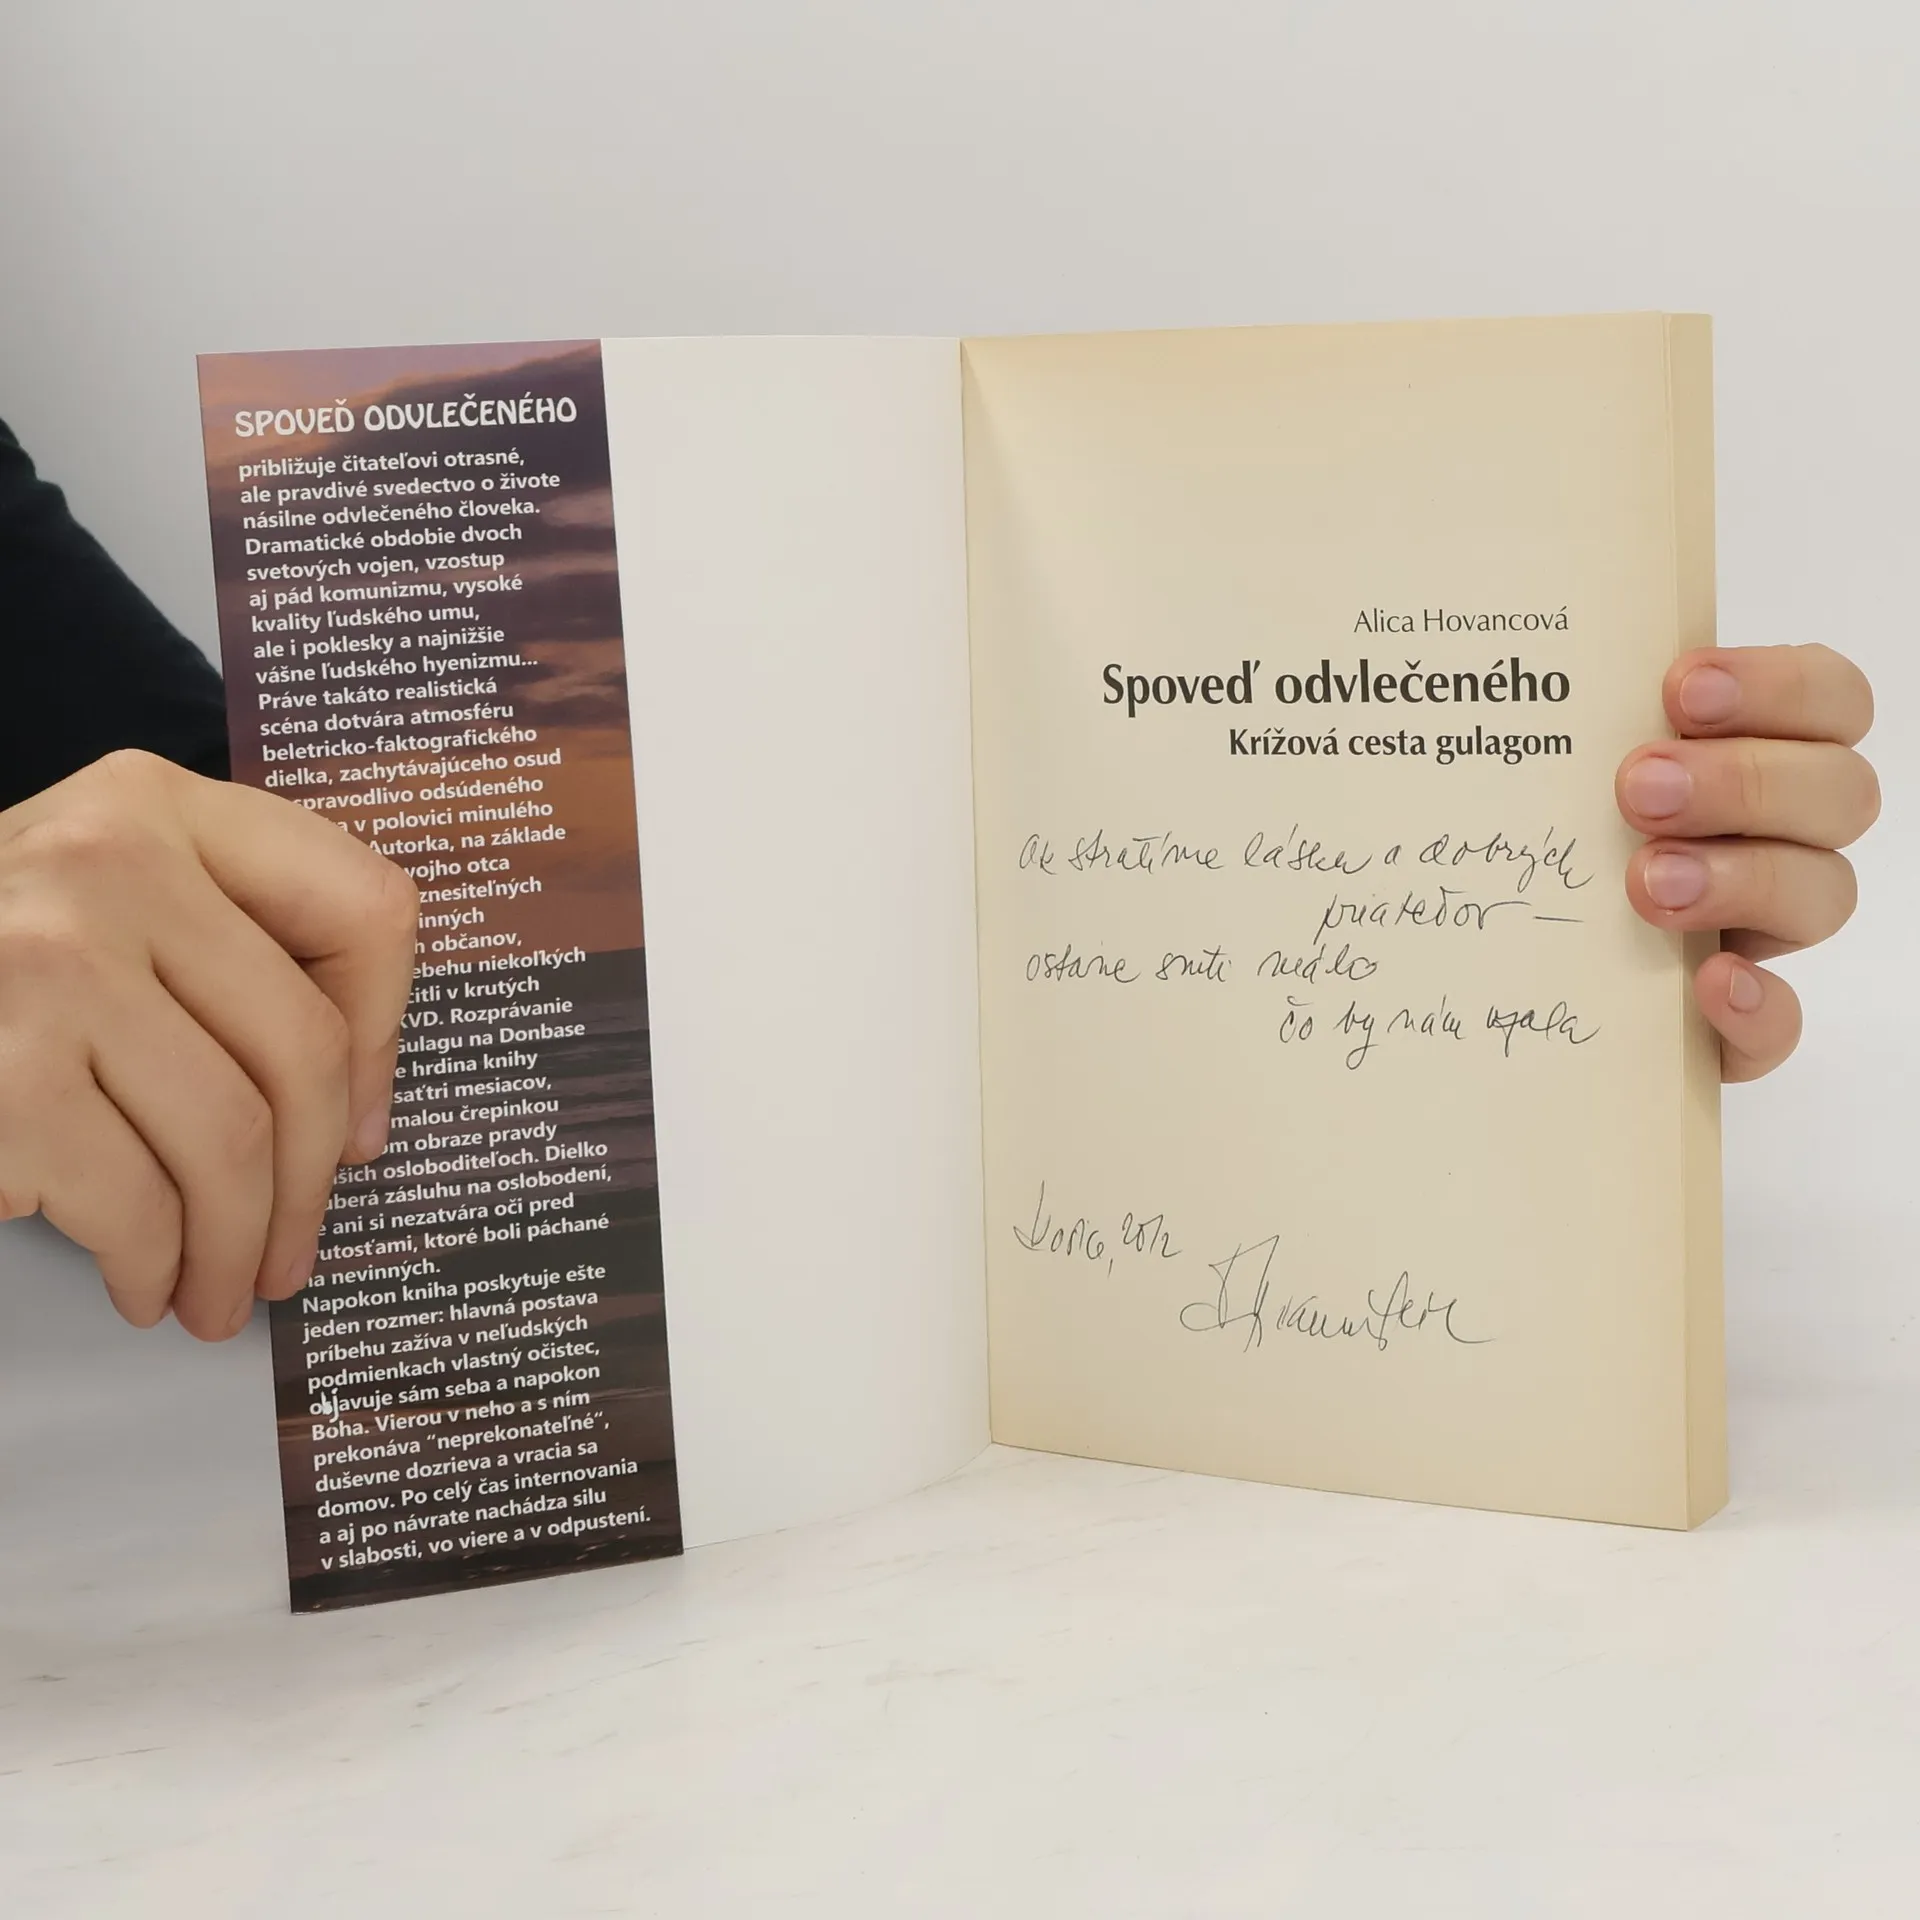 SPOVEĎ ODVLEČENÉHO
približuje čitateľovi otrasné,
ale pravdivé svedectvo o živote
násilne odvlečeného človeka.
Dramatické obdobie dvoch
svetových vojen, vzostup
aj pád komunizmu, vysoké
kvality ľudského umu,
ale i poklesky a najnižšie
vášne ľudského hyenizmu...
Práve takáto realistická
scéna dotvára atmosféru
beletricko-faktografického
dielka, zachytávajúceho osud
spravodlivo odsúdeného
a v polovici minulého
Autorka, na základe
vojho otca
znesiteľných
inných
h občanov,
ebehu niekoľkých
citli v krutých
KVD. Rozprávanie
Gulagu na Donbase
e hrdina knihy
saťtri mesiacov,
malou črepinkou
om obraze pravdy
šich osloboditeľoch. Dielko
uberá zásluhu na oslobodení,
e ani si nezatvára oči pred
rutosťami, ktoré boli páchané
na nevinných.
Napokon kniha poskytuje ešte
jeden rozmer: hlavná postava
príbehu zažíva v neľudských
podmienkach vlastný očistec,
objavuje sám seba a napokon
Boha. Vierou v neho a s ním
prekonáva "neprekonateľné",
duševne dozrieva a vracia sa
domov. Po celý čas internovania
a aj po návrate nachádza silu
v slabosti, vo viere a v odpustení.
Alica Hovancová
Spoveď odvlečeného
Krížová cesta gulagom
Ak stratíme lásku a dobrých
priateľov —
ostane smrti málo
čo by nám vzala
2012